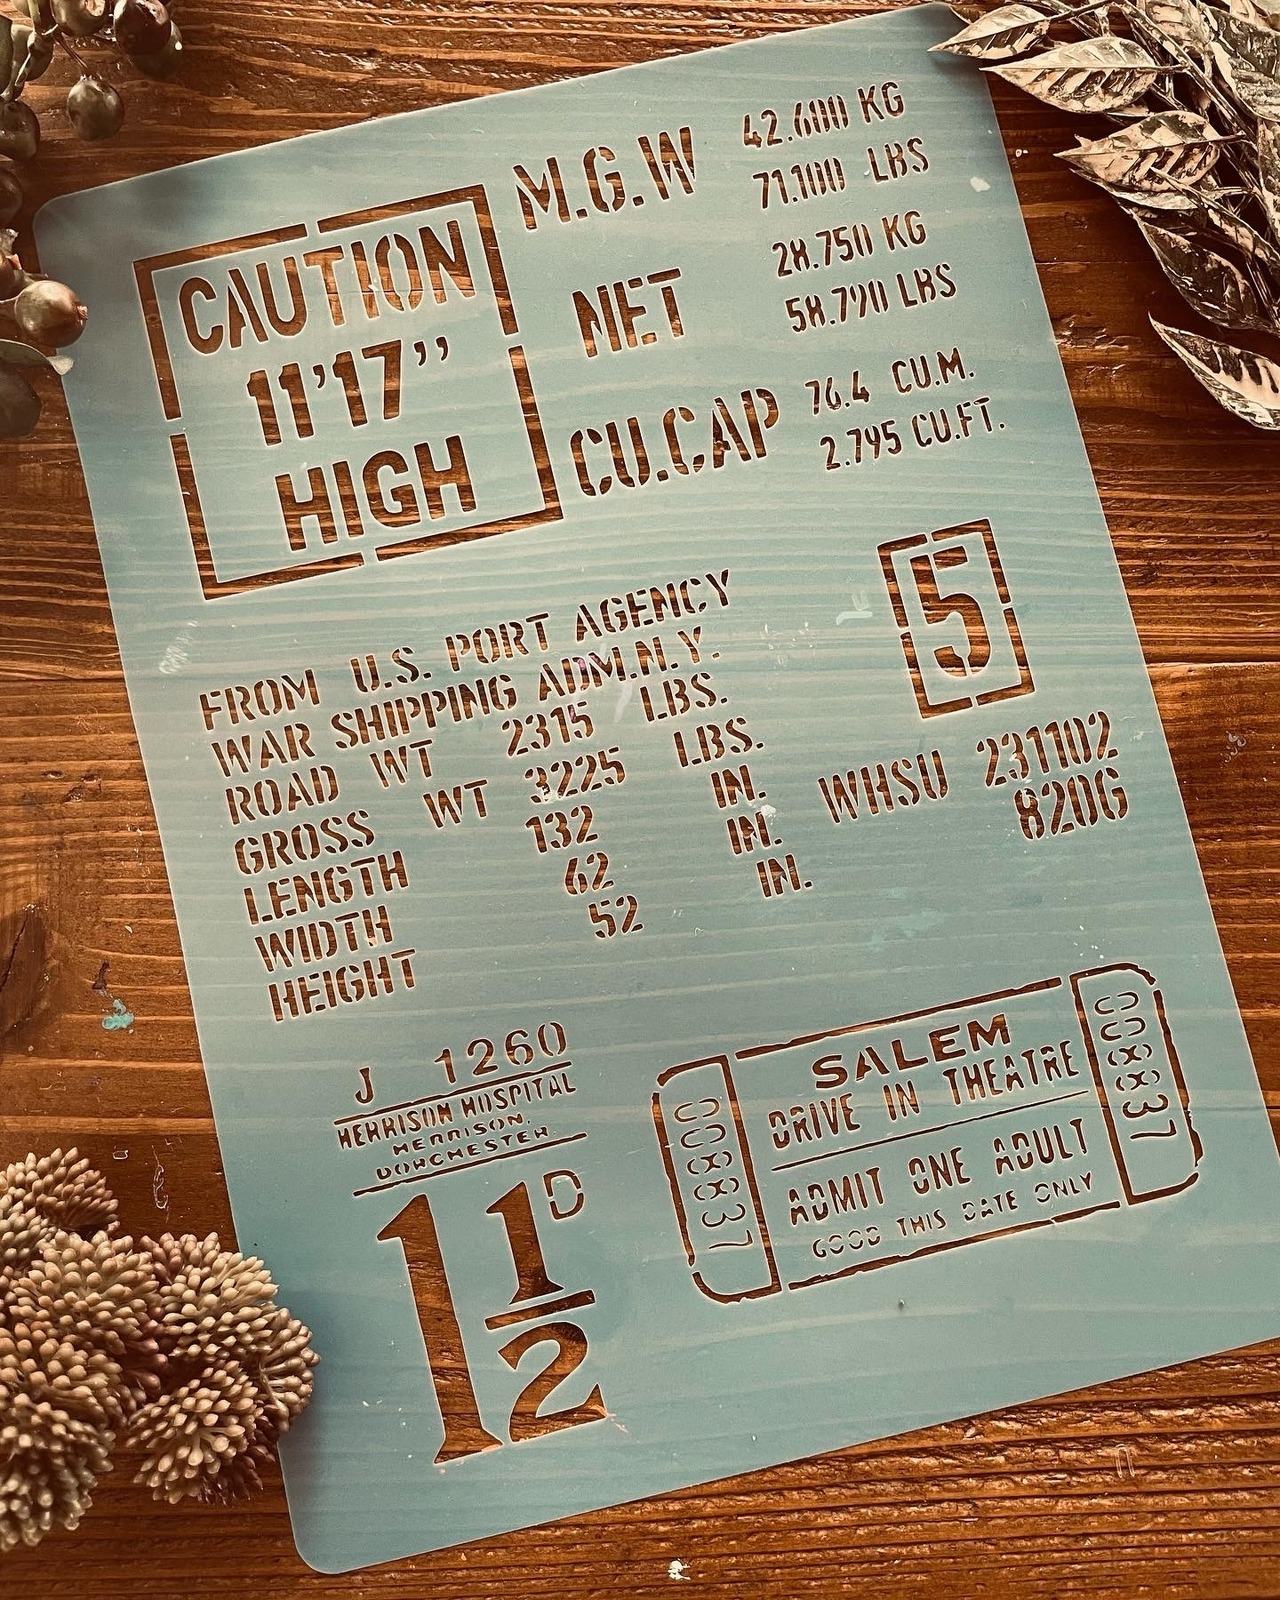 CAUTION
11’17’’
HIGH
M.G.W 42.600 KG
71.100 LBS
NET 28.750 KG
58.790 LBS
CU.CAP 76.4 CU.M.
2.795 CU.FT.
5
FROM U.S. PORT AGENCY
WAR SHIPPING ADM.N.Y.
ROAD WT 2315 LBS.
GROSS WT 3225 LBS.
LENGTH 132 IN.
WIDTH 62 IN.
HEIGHT 52 IN.
WHSU 231102
820G
J 1260
HERRISON HOSPITAL
HERRISON,
DORCHESTER
1 1/2 D
SALEM
DRIVE IN THEATRE
ADMIT ONE ADULT
GOOD THIS DATE ONLY